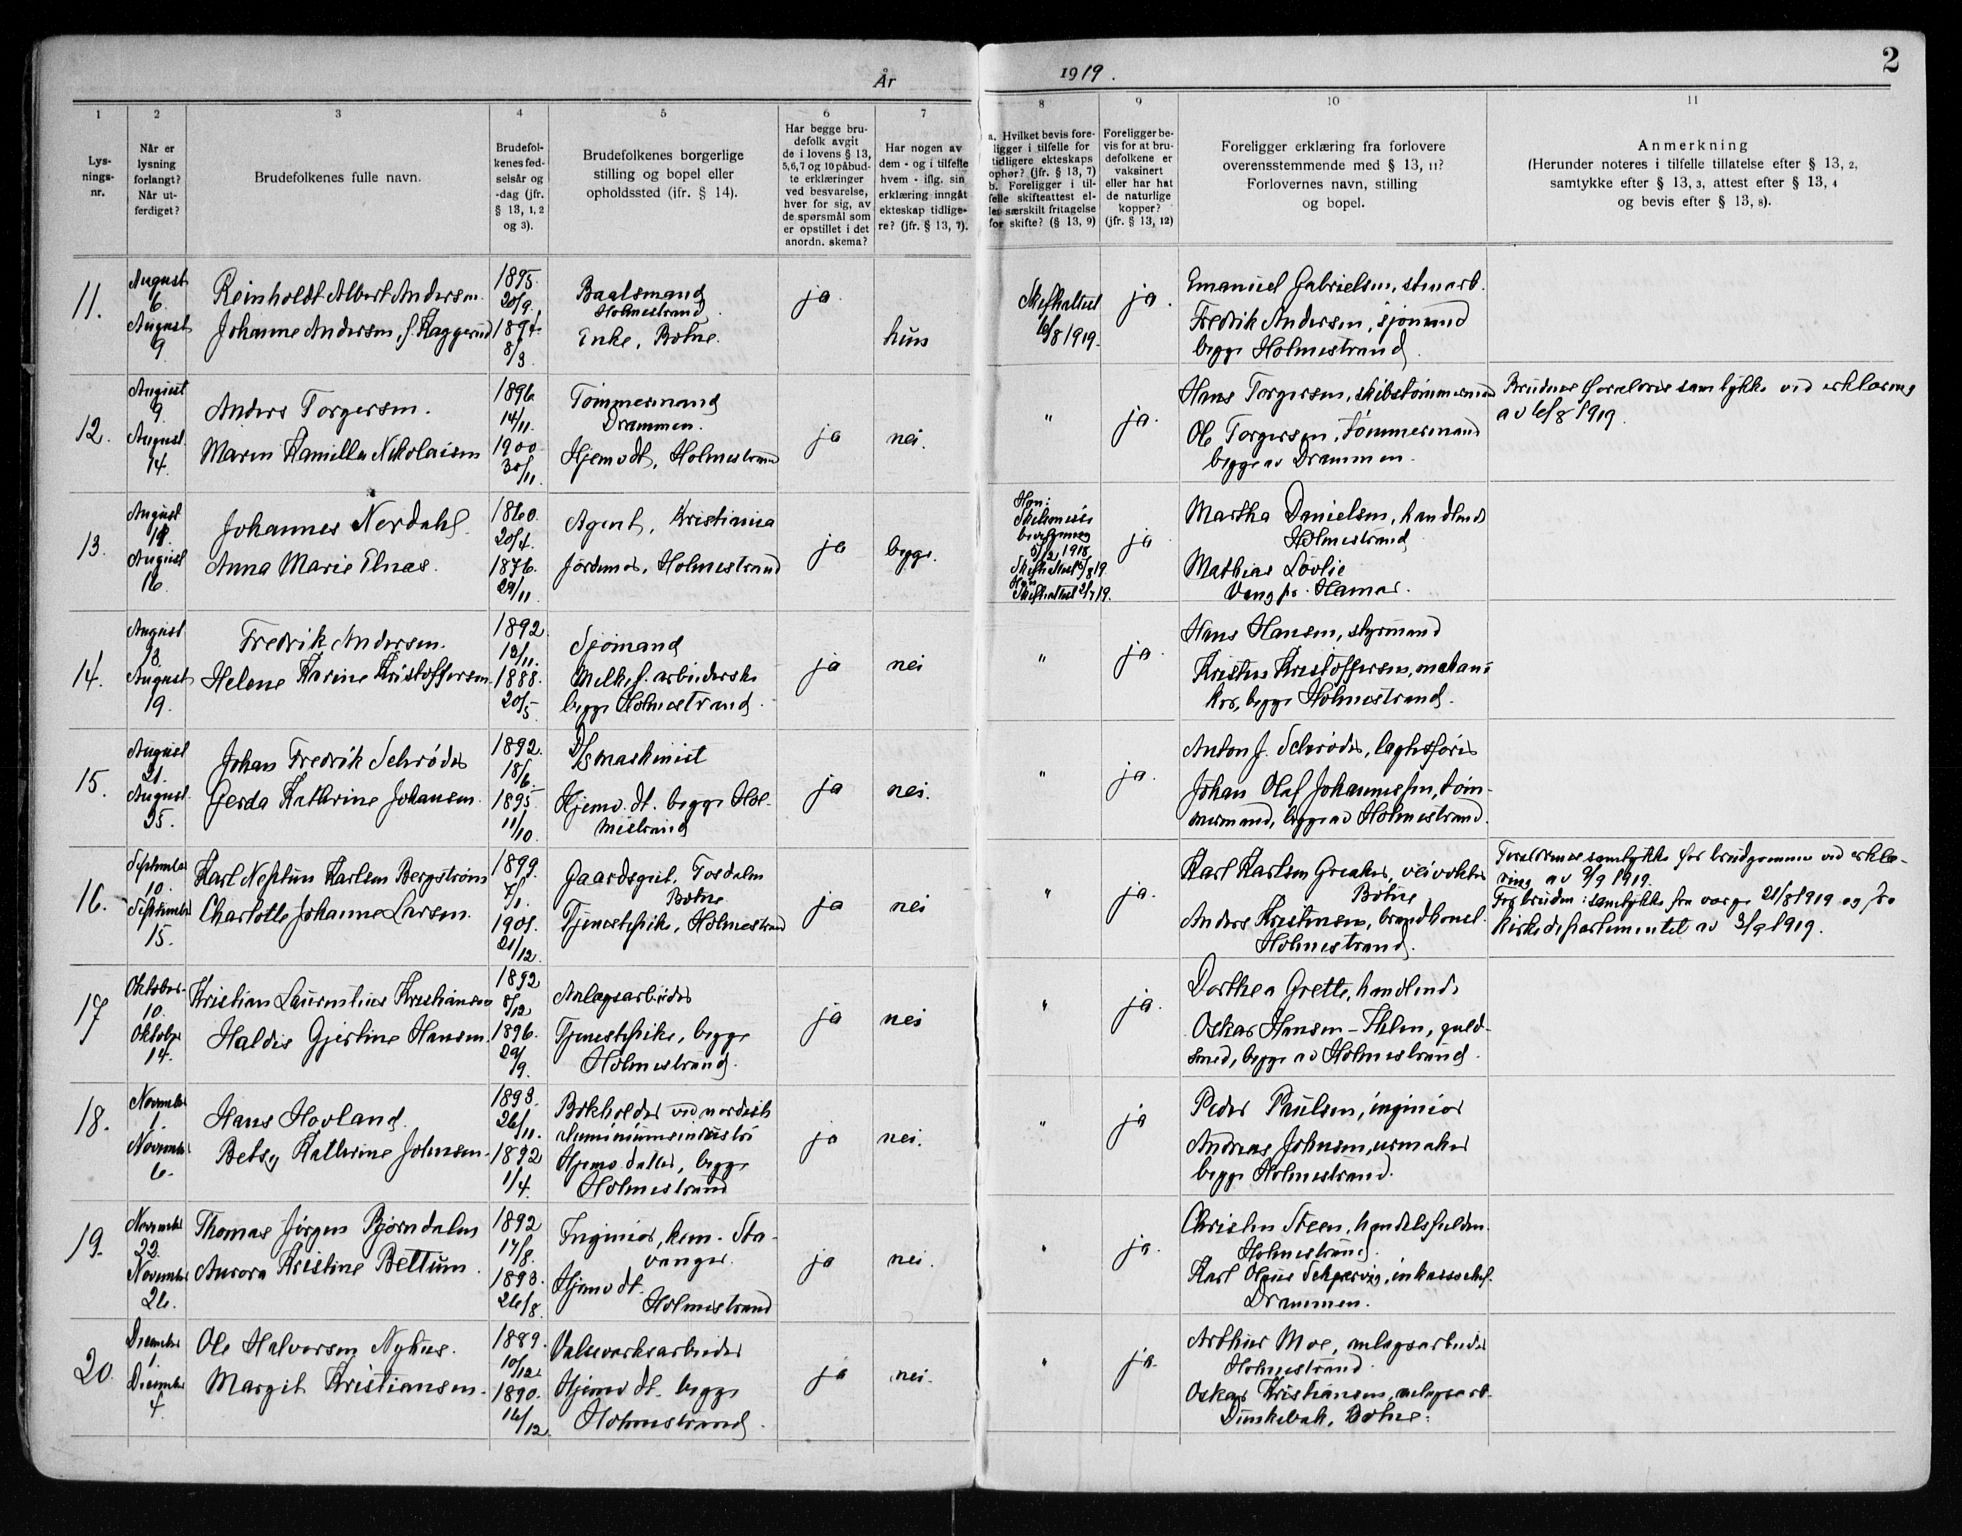 År 1919.
2
1 2 3 4 5 6 7 8 9 10 11
Lys-
nings-
nr.
Når er
lysning
forlangt?
Når ut-
ferdiget?
Brudefolkenes fulle navn.
Brudefol-
kenes fød-
selsår og
-dag (jfr.
§ 13, 1, 2
og 3).
Brudefolkenes borgerlige
stilling og bopel eller
opholdssted (jfr. § 14).
Har begge bru-
defolk avgit
de i lovens § 13,
5,6,7 og 10 påbud-
te erklæringer
ved besvarelse,
hver for sig, av
de spørsmål som
er opstillet i det
anordn. skema?
Har nogen av
dem - og i tilfelle
hvem - iflg. sin
erklæring inngåt
ekteskap tidlige-
re? (jfr. § 13, 7).
a. Hvilket bevis fore-
ligger i tilfelle for
tidligere ekteskaps
ophør? (jfr. § 13, 7)
b. Foreligger i til-
felle skifteattest el-
ler særskilt fritagelse
for skifte? (§ 13, 9)
Foreligger be-
vis for at bru-
defolkene er
vaksinert
eller har hat
de naturlige
kopper?
(jfr. § 13, 12)
Foreligger erklæring fra forlovere
overensstemmende med § 13, 11?
Forlovernes navn, stilling
og bopel.
Anmerkning
(Herunder noteres i tilfelle tillatelse efter § 13, 2,
samtykke efter § 13, 3, attest efter § 13, 4
og bevis efter § 13, 8).
11.
August
6.
August
9.
Reinholdt Albert Andersen.
Johanne Andersen, f.
1895.
20/9.
1894.
8/3.
Baatsmand
Holmestrand.
Enke, Botne.
ja.
hun
6/8 1919.
ja.
Emanuel Gabrielsen,
Fredrik Andersen, sjømand
begge Holmestrand.
12.
August
9.
August
14.
Anders Torgersen.
Maren Kamilla Nikolaisen
1896
14/11.
1900.
30/11.
Tømmermand
Drammen.
Hjemv. dt., Holmestrand
ja
nei.
"
ja.
Hans Torgersen, skibstømmermand
Ole Torgersen, tømmermand
begge av Drammen.
Brudens forældres samtykke ved erklæring
av 6/8 1919.
13.
August
August
16.
Johannes Nordahl.
Anna Marie Elnas.
1860.
20/4.
1876.
29/11.
Agent, Kristiania
Jordmor, Holmestrand
ja
begge.
ja
Martha Danielsen, handlende
Holmestrand
Mathias Løvlie
Vang pr. Hamar.
14.
August
18.
August
19.
Fredrik Andersen.
Helene Karine Kristoffersen.
1892.
13/11.
1888.
20/5.
Sjømand
Melkef. arbeiderske
begge Holmestrand.
ja
nei
"
ja.
Hans Hansen, styrmand
Kristen Kristoffersen, mekani
ker, begge Holmestrand.
15.
August
21.
August
25.
Johan Fredrik Schrøder
Gerda Kathrine Johansen.
1892.
18/6.
1895.
11/10.
D/S maskinist
Hjemv. dt. begge Hol-
mestrand
ja
nei.
"
ja.
Anton J. Schrøder,
Johan Olaf Johannessen, tøm-
mermand, begge av Holmestrand.
16.
September
10.
September
15.
Karl Neptun Karlsen Bergstrøm
Charlotte Johanne Larsen.
1899.
7/1.
1901.
21/12.
Gaardsgut,
Botne
Tjenestepike, Holmestrand
ja
nei
"
ja.
Karl Karlsen Greaker, veivokter
Botne
Anders Kristensen,
Holmestrand.
Forældrenes samtykke for brudgommen ved erklæ-
ring av 2/9 1919.
For bruden: samtykke fra værge 21/8 1919 og fra
kirkedepartementet av 3/9 1919.
17
Oktober.
10.
Oktober
14.
Kristian Laurentius Kristiansen
Haldis Gjertine Hansen.
1892
8/12
1896.
29/9.
Anlægsarbeider
Tjenestepike, begge
Holmestrand.
ja
nei
"
ja.
Dorthea Grette, handlende
Oskar Hansen-Thlen, guld-
smed, begge av Holmestrand.
18.
November
1.
November
6.
Hans Hovland.
Betsy Kathrine Johnsen.
1893.
26/11.
1892
1/4.
Bokholder ved nordisk
aluminiumsindustri
Hjemv. datter, begge
Holmestrand
ja
nei.
"
ja
Peder Paulsen, ingeniør
Andreas Johnsen, urmaker
begge Holmestrand.
19.
November
22.
November
26.
Thomas Jørgen Bjørndalen
Aurora Kristine Bettum.
1892
17/8.
1893.
26/8.
Ingeniør, hem. Sta-
vanger.
Hjemv. dt.
Holmestrand
ja
nei.
"
ja.
Christen Steen,
Holmestrand.
Karl Olaus inkassochef.
Drammen.
20.
December
1.
December
4.
Ole Halvorsen Nyhus.
Margit Kristiansen.
1889.
10/12
1890.
16/12.
Valseverksarbeider
Hjemv. dt. begge
Holmestrand.
ja
nei.
"
ja.
Arthur Moe, anlægsarbeider
Holmestrand.
Oskar Kristiansen, anlægsarb.
Botne.